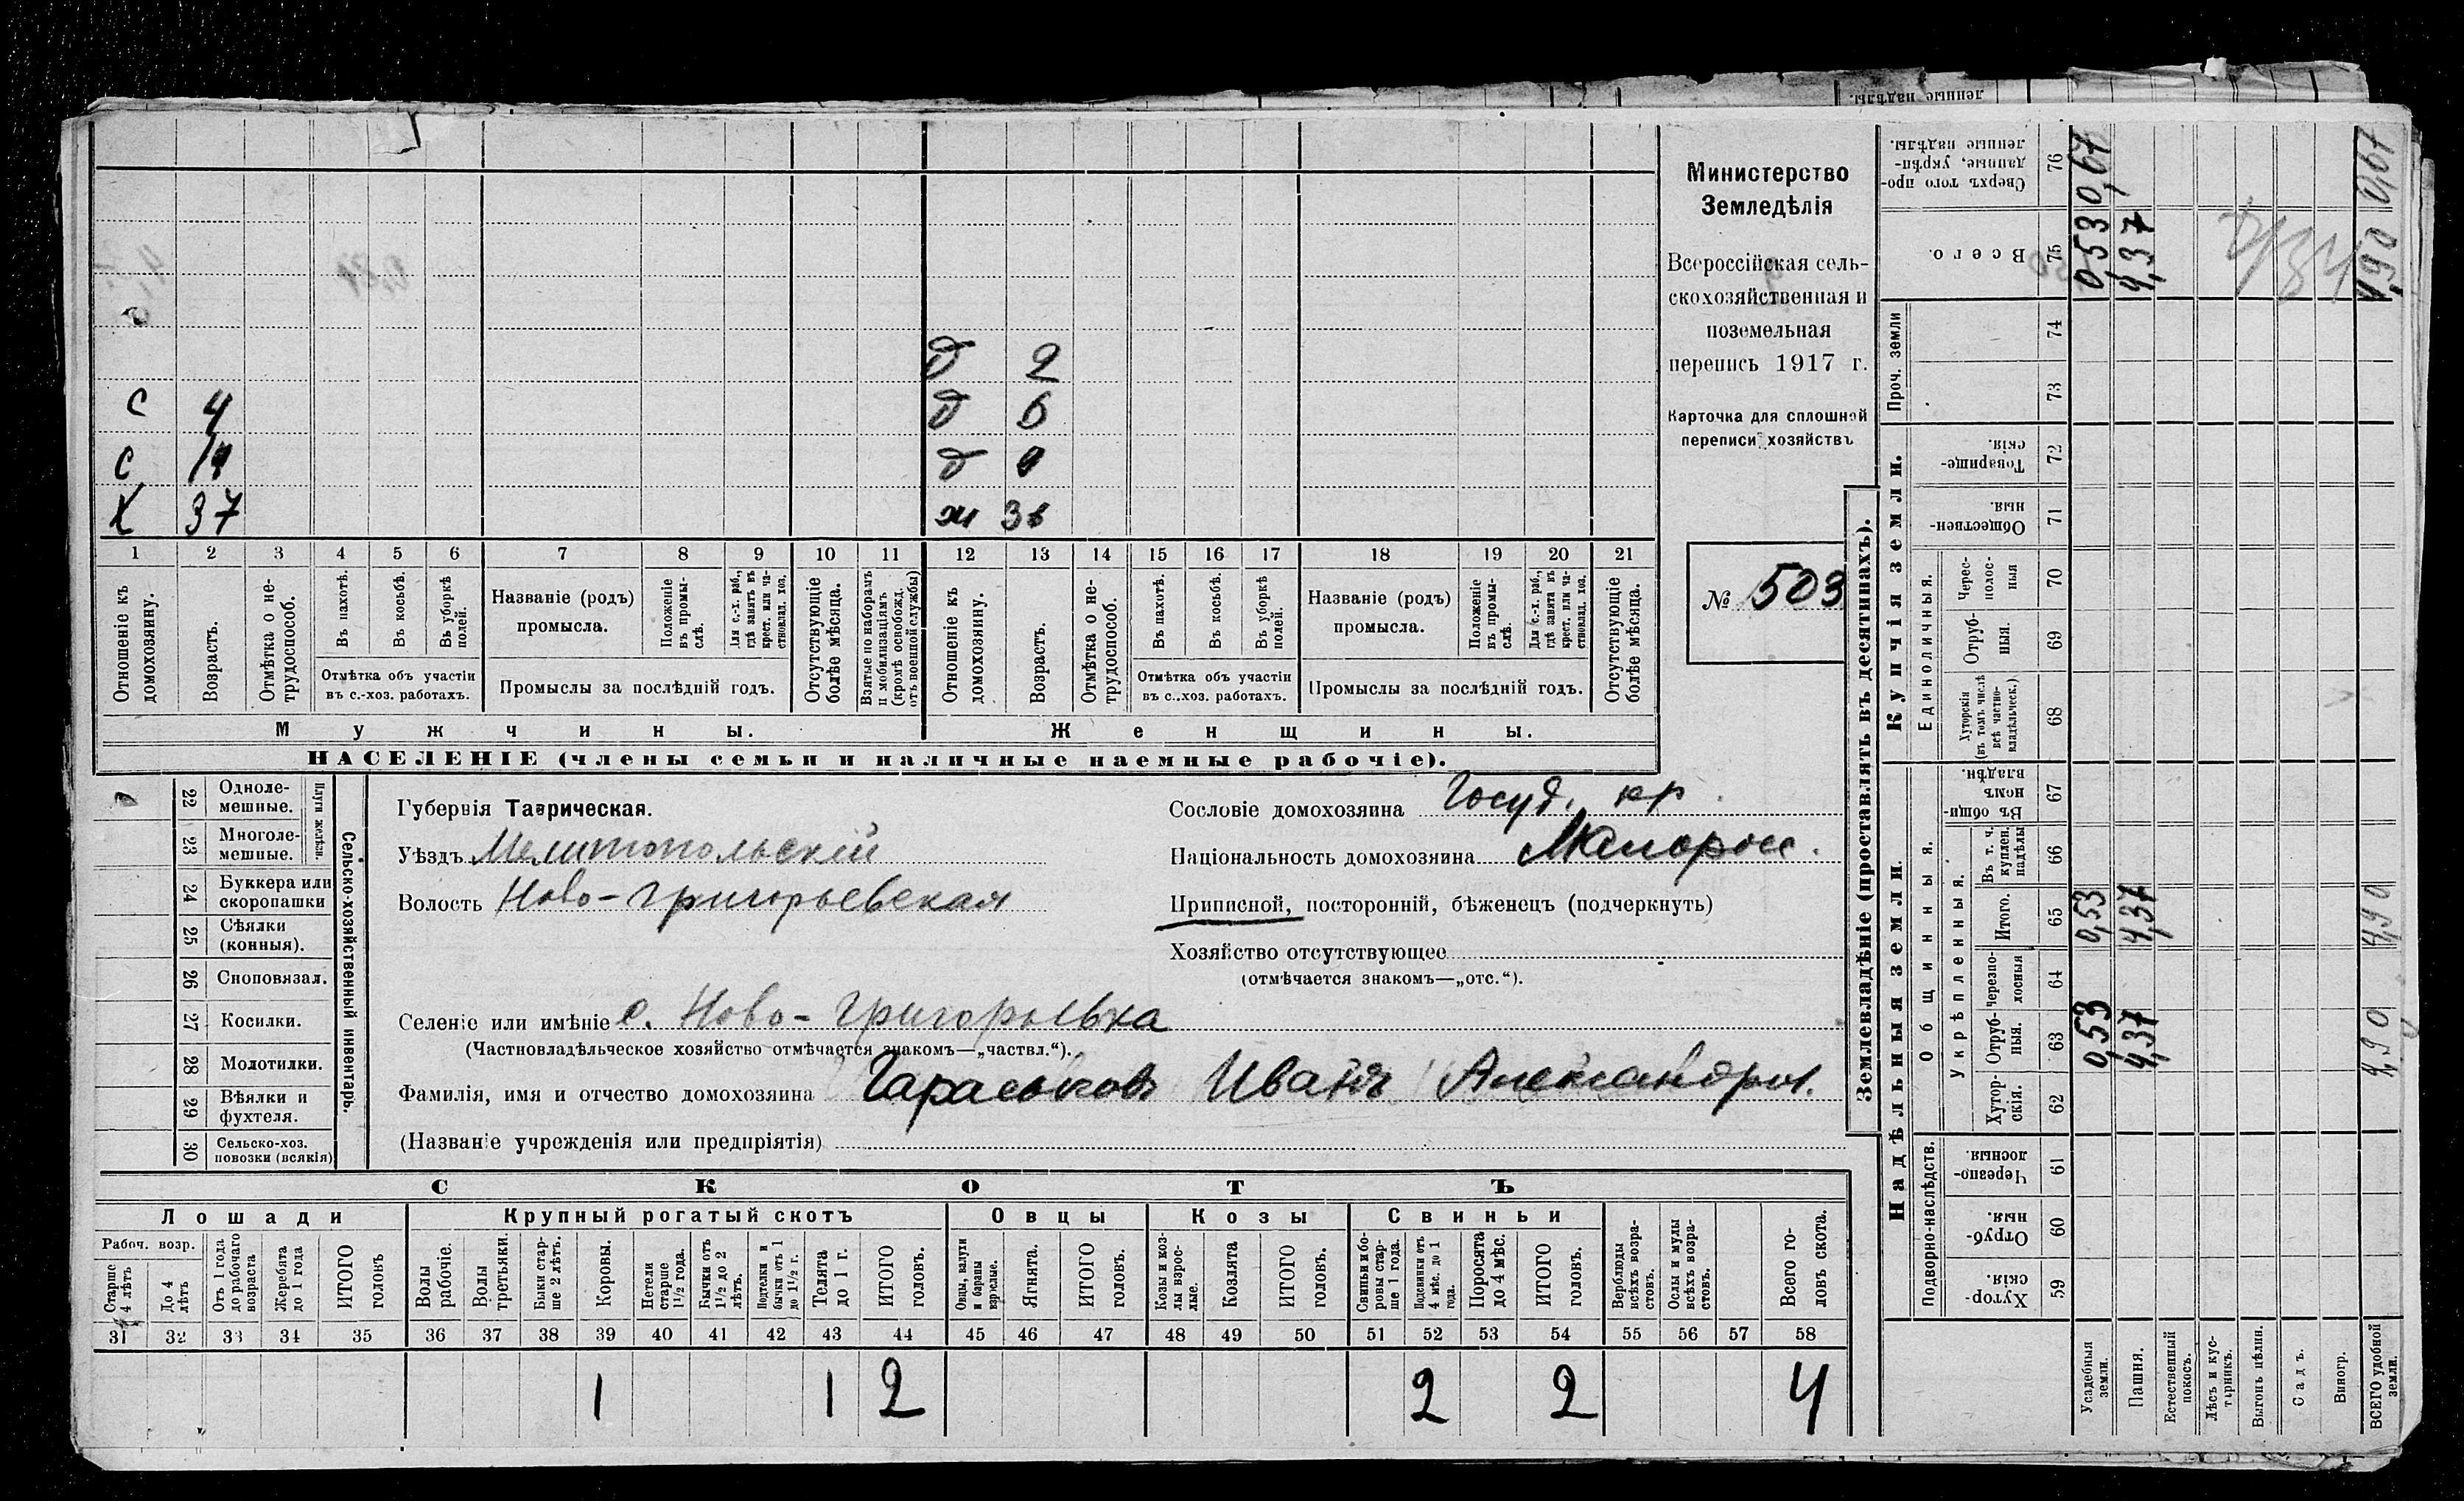 ленные надѣлы.
С 4
С
Х 37
д 2
д 6
д
ж 36
1 2 3 4 5 6 7 8 9 10 11 12 13 14 15 16 17 18 19 20 21
Отношеніе къ домохозяину.
Возрастъ.
Отмѣтка о не-трудоспособ.
Въ пахотѣ.
Въ косьбѣ.
Въ уборкѣ полей.
Отмѣтка объ участіи
въ с.-хоз. работахъ.
Названіе (родъ)
промысла.
Положеніе въ промы-слѣ.
Для с.-х. раб., гдѣ занятъ въ крест. или ча-стновлад. хоз.
Промыслы за послѣдній годъ.
Отсутствующіе болѣе мѣсяца.
Взятые по наборамъ и мобилизаціямъ (кромѣ освобожд. отъ военной службы)
Отношеніе къ домохозяину.
Возрастъ.
Отмѣтка о не-трудоспособ.
Въ пахотѣ.
Въ косьбѣ.
Въ уборкѣ полей.
Отмѣтка объ участіи
въ с.-хоз. работахъ.
Названіе (родъ)
промысла.
Положеніе въ промы-слѣ.
Для с.-х. раб., гдѣ занята въ крест. или ча-стновлад. хоз.
Промыслы за послѣдній годъ.
Отсутствующіе болѣе мѣсяца.
Мужчины. Женщины.
НАСЕЛЕНІЕ (члены семьи и наличные наемные рабочіе).
Министерство
Земледѣлія
Всероссійская сель-
скохозяйственная и
поземельная
перепись 1917 г.
Карточка для сплошной
переписи хозяйствъ
№ 503
22 Одноле-мешные.
23 Многоле-мешные.
Плуги желѣзн.
24 Буккера или скоропашки
25 Сѣялки (конныя).
26 Сноповязал.
27 Косилки.
28 Молотилки.
29 Вѣялки и фухтеля.
30 Сельско-хоз. повозки (всякія)
Сельско-хозяйственный инвентарь.
Губернія Таврическая.
Уѣздъ Мелитопольскій
Волость Ново-Григорьевская
Сословіе домохозяина Госуд. кр.
Національность домохозяина Малоросс.
Приписной, посторонній, бѣженецъ (подчеркнуть)
Хозяйство отсутствующее
(отмѣчается знакомъ—„отс.“).
Селеніе или имѣніе с. Ново-Григорьевка
(Частновладѣльческое хозяйство отмѣчается знакомъ—„частвл.“).
Фамилія, имя и отчество домохозяина Тараськовъ Иванъ Александров.
(Названіе учрежденія или предпріятія)
СКОТЪ
Лошади Крупный рогатый скотъ Овцы Козы Свиньи
Рабоч. возр.
Старше 4 лѣтъ
До 4 лѣтъ
Отъ 1 года до рабочаго возраста
Жеребята до 1 года
ИТОГО головъ
Волы рабочіе.
Волы третьяки.
Быки стар-ше 2 лѣтъ.
Коровы.
Нетели старше 1½ года.
Бычки отъ 1½ до 2 лѣтъ.
Подтелки и бычки отъ 1 до 1½ г.
Телята до 1 г.
ИТОГО головъ.
Овцы, валухи и бараны взрослые.
Ягнята.
ИТОГО головъ.
Козы и коз-лы взрос-лые.
Козлята
ИТОГО головъ.
Свиньи и бо-ровы стар-ше 1 года.
Подсвинки отъ 4 мѣс. до 1 года.
Поросята до 4 мѣс.
ИТОГО головъ.
Верблюды всѣхъ возра-стовъ.
Ослы и мулы всѣхъ возра-стовъ.
Всего го-ловъ скота.
31 32 33 34 35 36 37 38 39 40 41 42 43 44 45 46 47 48 49 50 51 52 53 54 55 56 57 58
1 1 2 2 2 4
Землевладѣніе (проставлять въ десятинахъ).
Надѣльныя земли. Купчія земли.
Подворно-наслѣдств.
Общинныя.
Укрѣпленныя.
Единоличныя.
Проч. земли
Хутор-скія. 59
Отруб-ныя. 60
Черезпо-лосныя. 61
Хутор-скія. 62
Отруб-ныя. 63
Черезпо-лосныя 64
Итого. 65
Въ т. ч. куплен. надѣлы 66
Въ общи-номъ владѣн. 67
Хуторскія (въ томъ числѣ всѣ частно-владѣльческ.) 68
Отруб-ныя. 69
Черес-полос-ныя 70
Обществен-ныя. 71
Товарище-скія. 72
73
74
Всего. 75
Сверхъ того про-данные, укрѣп-ленные надѣлы. 76
Усадебныя земли. 0,53 0,53 0,53 0,67
Пашня. 4,37 4,37 4,37
Естественный покосъ.
Лѣсъ и кус-тарникъ.
Выгонъ цѣлин.
Садъ.
Виногр.
ВСЕГО удобной земли. 4,90 4,90 4,90 0,67